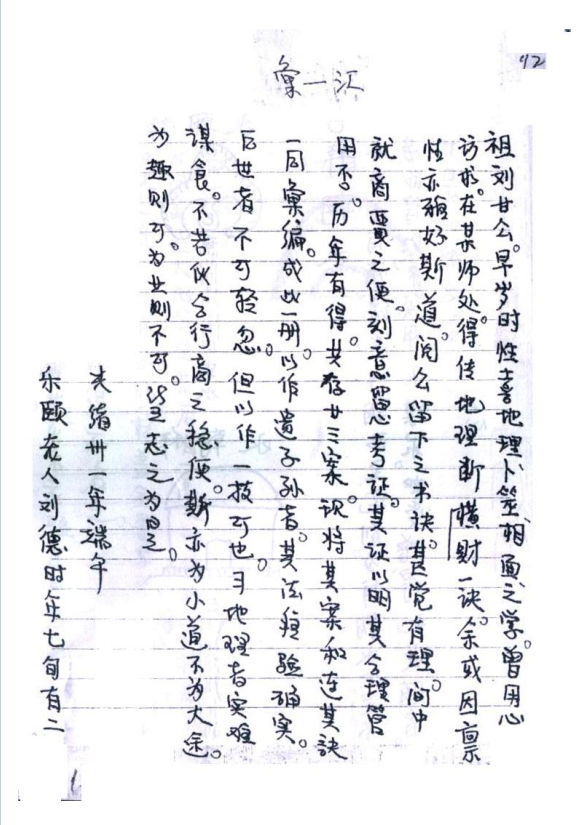 42
汇一案
祖刘甘公。早岁时性喜地理卜筮相面之学。曾用心
访求。在某师处得传地理断横财一诀。余或因禀
性亦雅好斯道。阅公留下之术诀。甚觉有理。间中
就商贾之便。刻意留意考证。其证以明其合理管
用否。历年有得。共存廿三案。现将其案和连其诀
一同案编。成此一册。以作遗子孙者。其法经验确实。
后世者不可轻忽。但以作一技可也。习地理者实难
谋食。不若伙合行商之稳便。斯亦为小道不为大途。
为趣则可。为业则不可。望志之为是。
光绪卅一年端午
乐颐老人刘德时年七旬有二
1